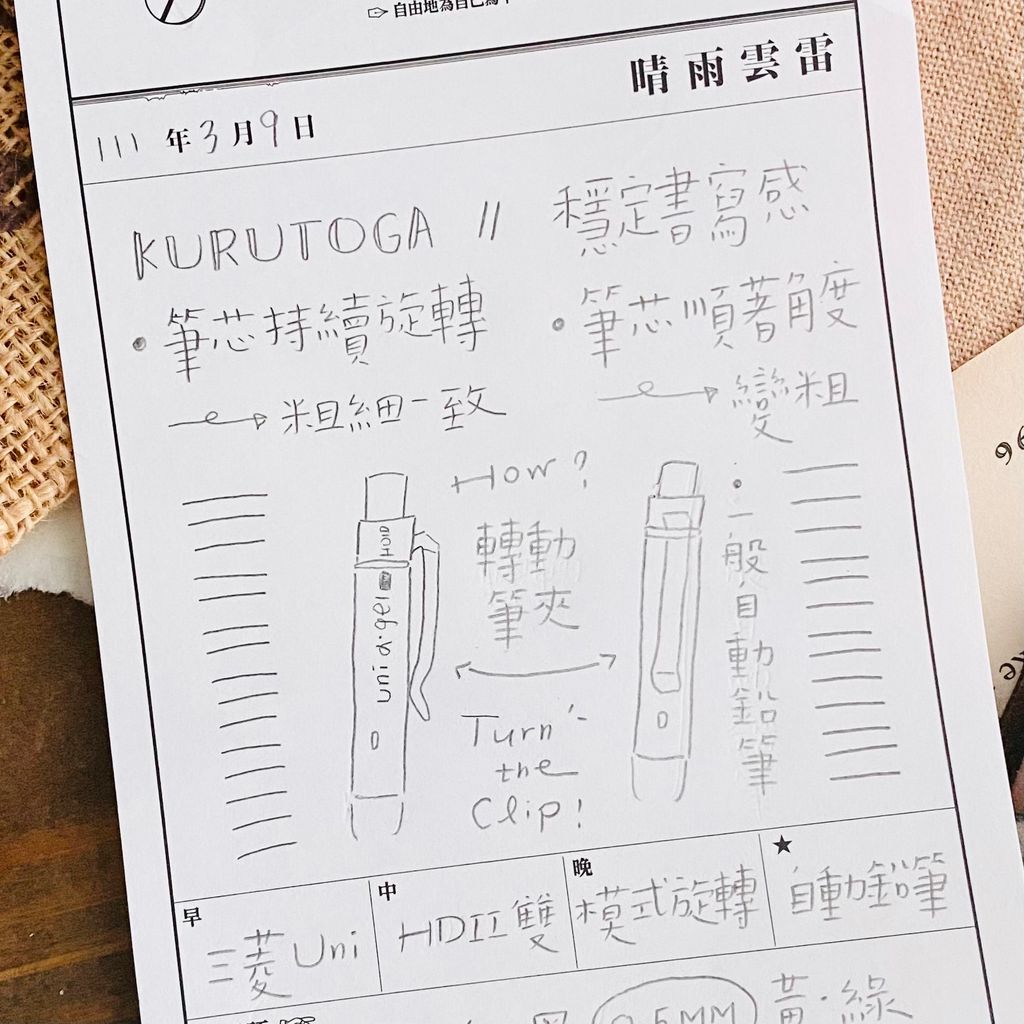 自由地為自己
晴雨雲雷
111年3月9日
KURUTOGA // 穩定書寫感
•筆芯持續旋轉
→粗細一致
•筆芯順著角度
→變粗
How?
轉動
筆夾
Turn
the
Clip!
uni α·gel
•一般自動鉛筆
早
三菱Uni
中
HDII雙
晚
模式旋轉
★
自動鉛筆
0.5MM
黃·綠